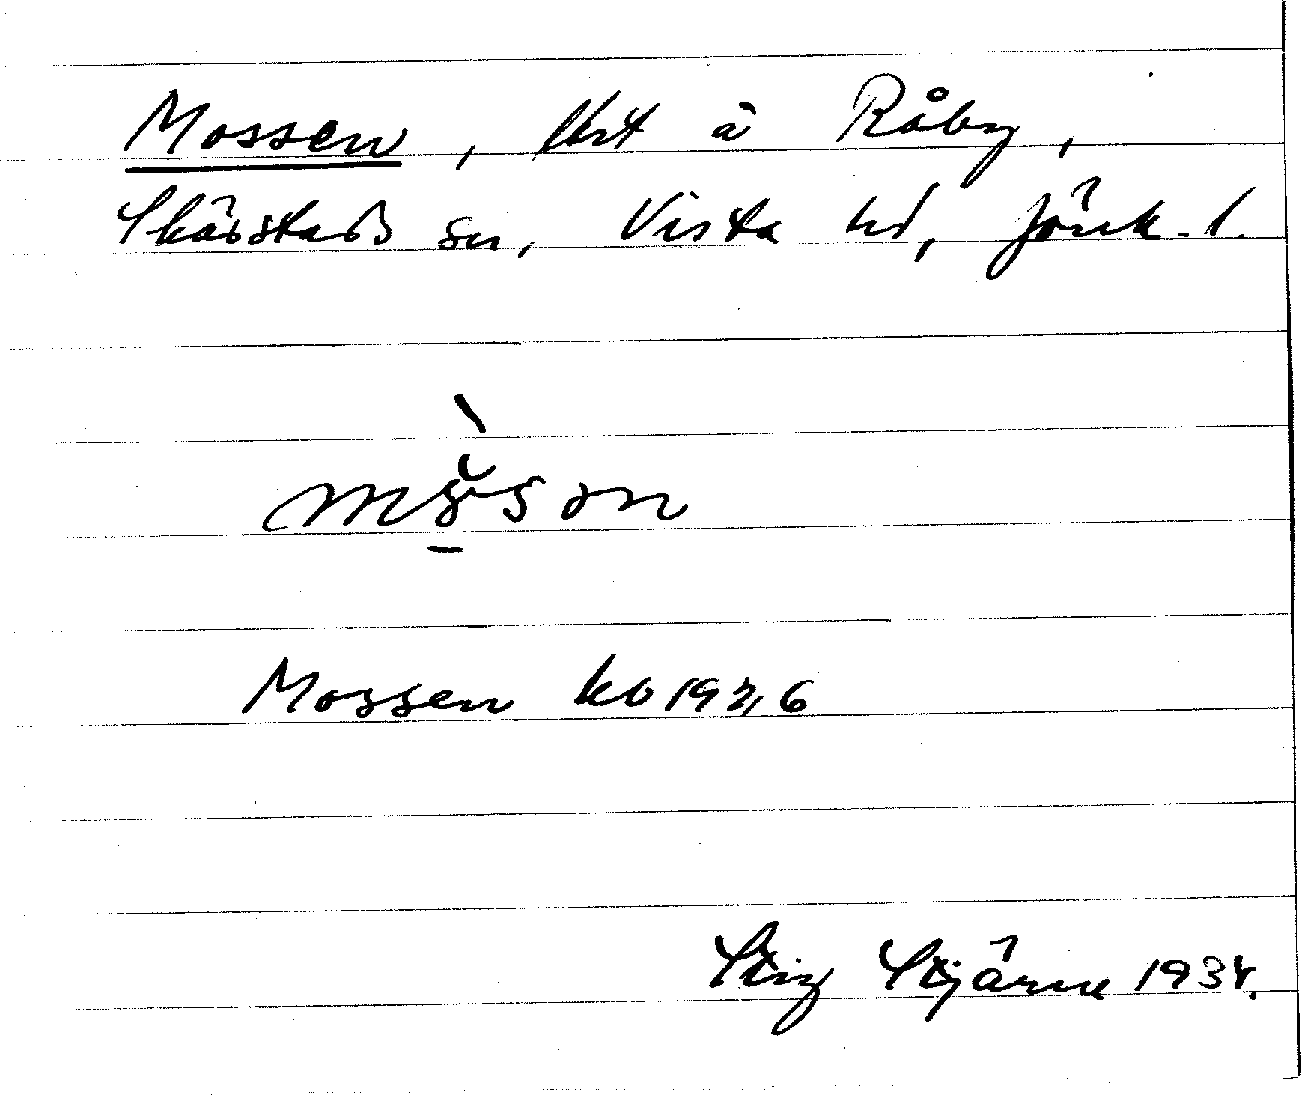 Mossen, lht å Råby,
Skärstads sn, Vista hd, Jönk. l.
Mossen kb 1926
Stig Stjärne 1934.